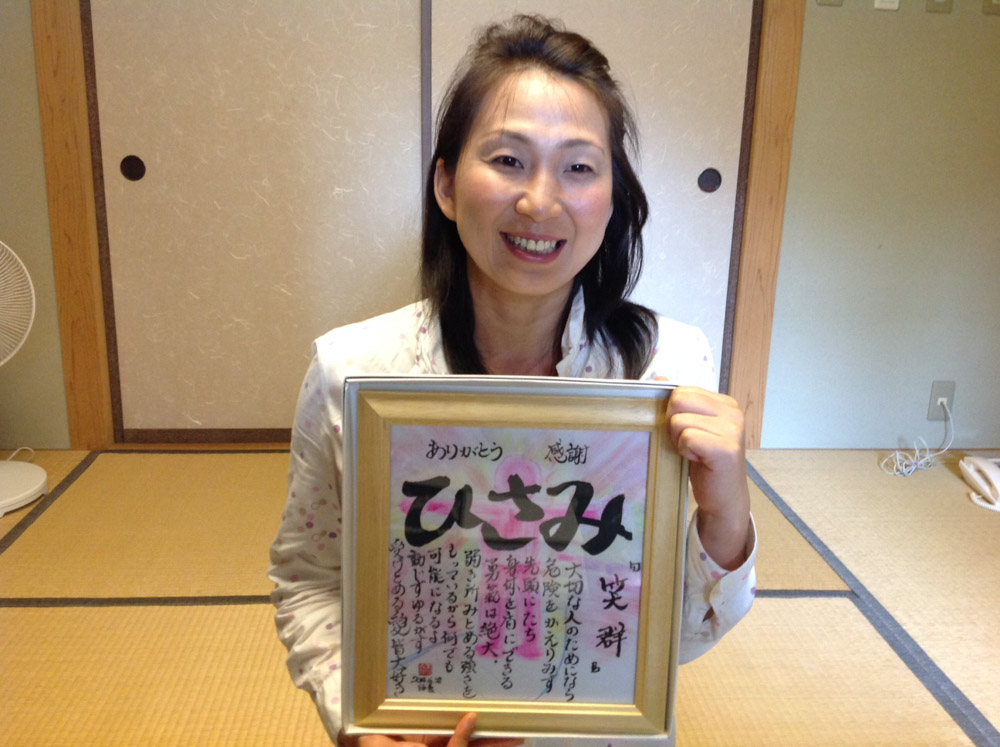 ありがとう 感謝
ひさみ
笑群
大切な人のためになら
危険をかえりみず
先頭にたち
身母を盾にできる
勇気は絶大.
弱き所みとめる強さを
もっているから何でも
可能になるよ
動じずゆるがず
受けとめる愛皆大好き